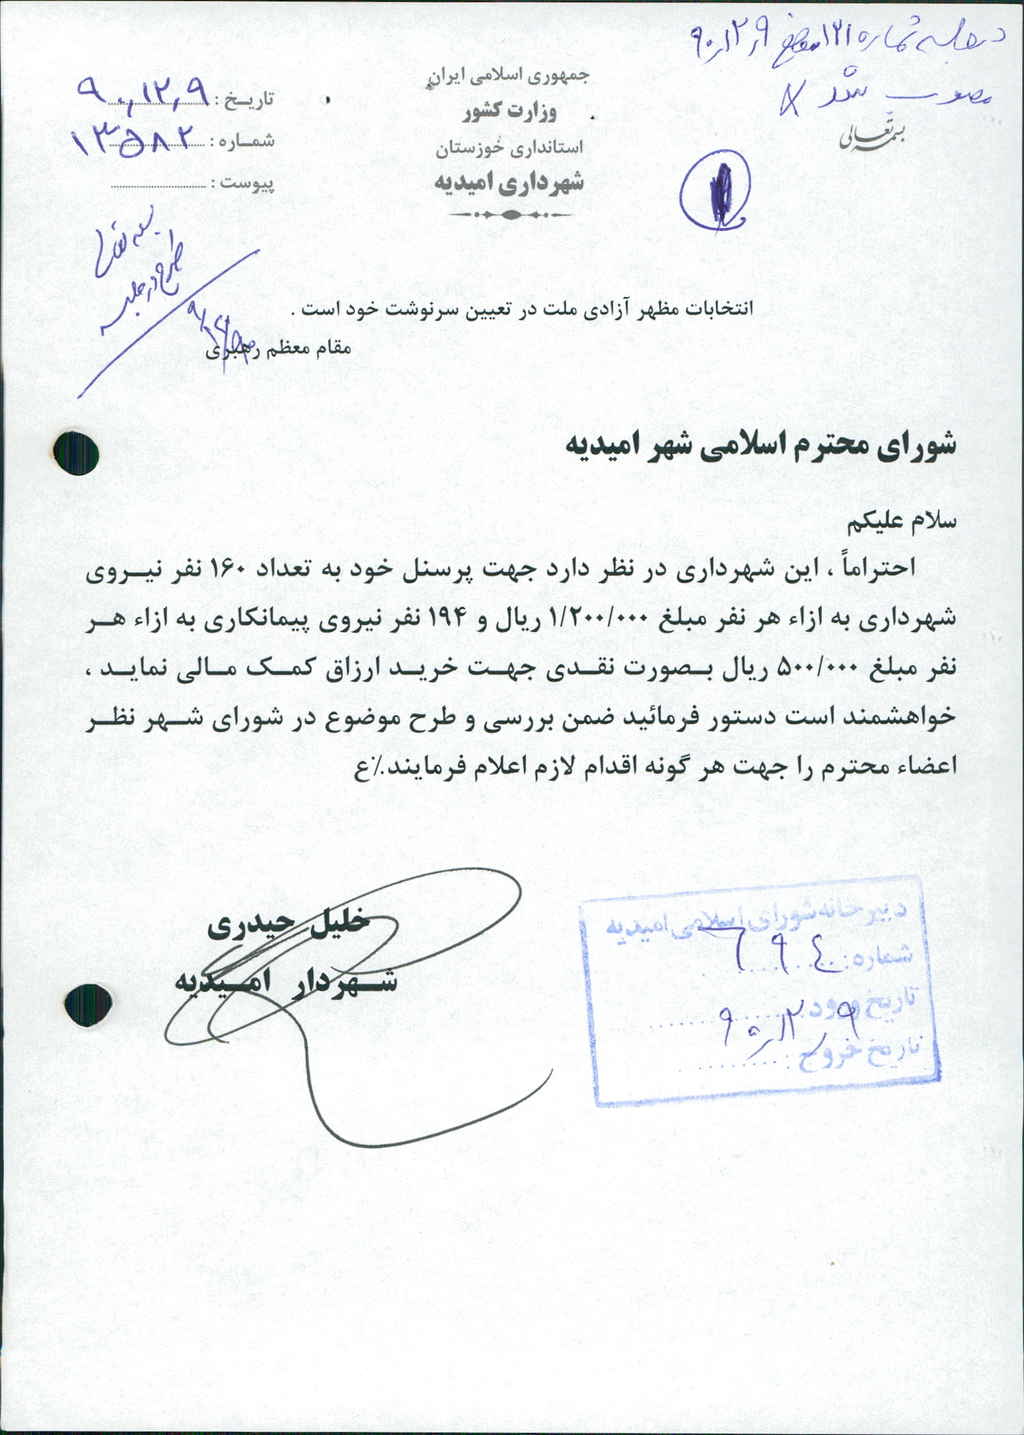 در جلسه شماره ۱۳۱ مورخ ۹۰/۱۲/۹
مصوب شد
بسمه تعالی
جمهوری اسلامی ایران
وزارت کشور
استانداری خوزستان
شهرداری امیدیه
تاریخ : ۹۰/۱۲/۹
شماره : ۱۳۵۸۲
پیوست :
بسمه تعالی
طرح در جلسه
انتخابات مظهر آزادی ملت در تعیین سرنوشت خود است .
مقام معظم رهبری
شورای محترم اسلامی شهر امیدیه
سلام علیکم
احتراماً ، این شهرداری در نظر دارد جهت پرسنل خود به تعداد ۱۶۰ نفر نیروی
شهرداری به ازاء هر نفر مبلغ ۱/۲۰۰/۰۰۰ ریال و ۱۹۴ نفر نیروی پیمانکاری به ازاء هر
نفر مبلغ ۵۰۰/۰۰۰ ریال بصورت نقدی جهت خرید ارزاق کمک مالی نماید ،
خواهشمند است دستور فرمائید ضمن بررسی و طرح موضوع در شورای شهر نظر
اعضاء محترم را جهت هر گونه اقدام لازم اعلام فرمایند.٪ع
خلیل حیدری
شهردار امیدیه
دبیرخانه شورای اسلامی امیدیه
شماره: ۶۹۴
تاریخ ورود: ۹۰/۱۲/۹
تاریخ خروج: